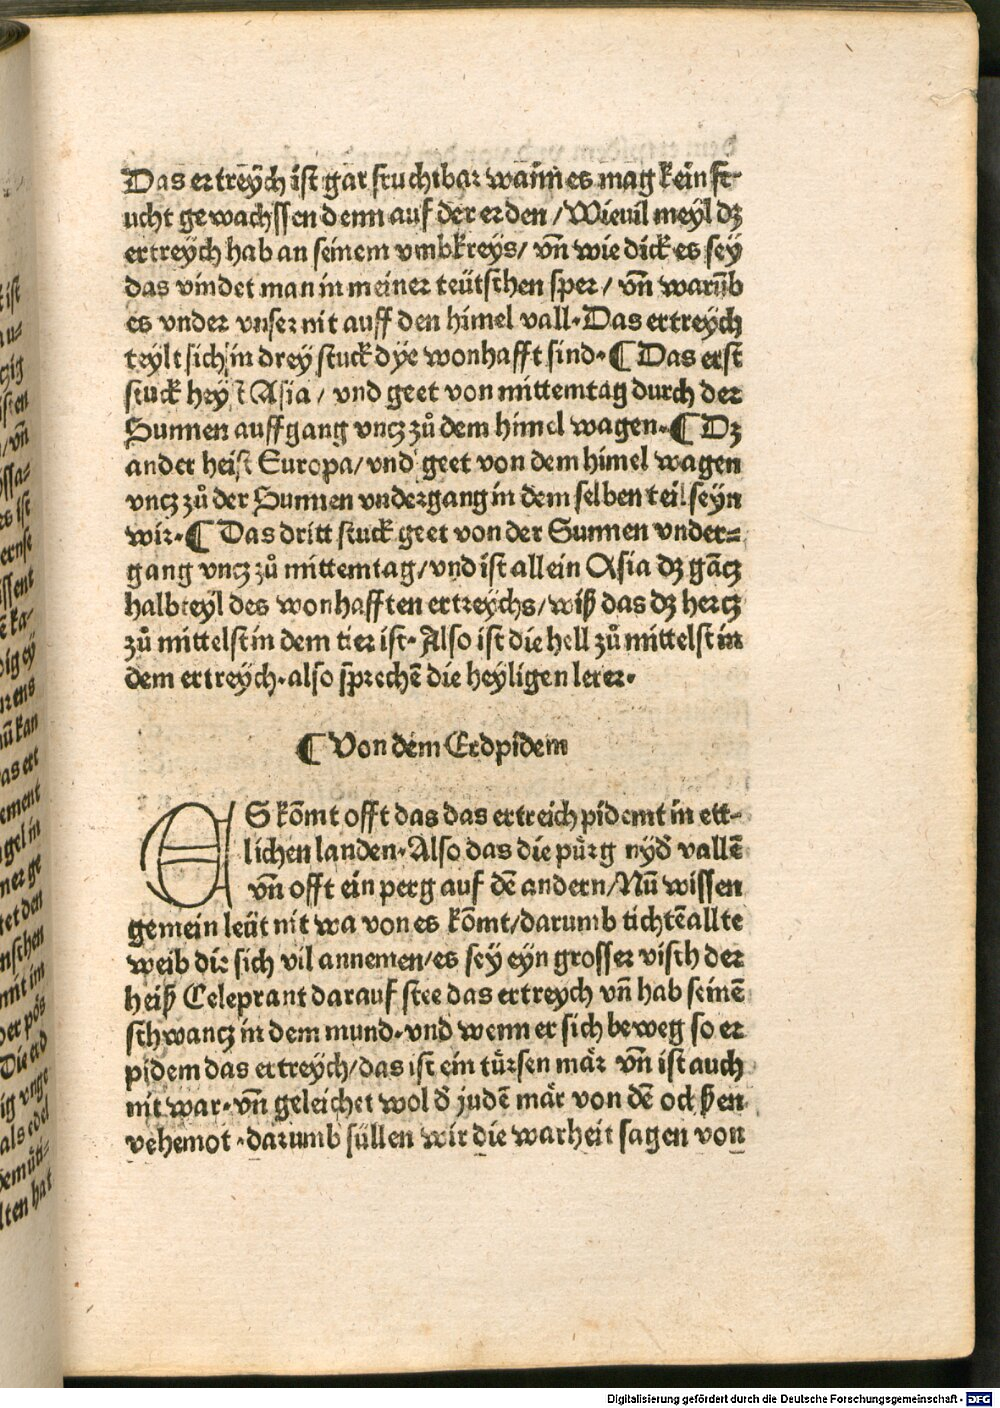 Das ertreÿch ist gar fruchtbar wann es mag kein fr-
ucht gewachssen denn auf der erden / Wieuil meyl dz
ertreÿch hab an seinem vmbkreÿs / vn̄ wie dick es seÿ
das vindet man in meiner teütschen sper / vn̄ warūb
es vnder vnser nit auff den himel vall · Das ertreÿch
teylt sich in dreÿ stuck dÿe wonhafft sind · ¶ Das erst
stuck heyst Asia / vnd geet von mittemtag durch der
Sunnen auffgang vncz zů dem himel wagen · ¶ Dz
ander heist Europa / vnd geet von dem himel wagen
vncz zů der Sunnen vndergang in dem selben teil seyn
wir · ¶ Das dritt stuck geet von der Sunnen vnder=
gang vncz zů mittemtag / vnd ist allein Asia dz gācz
halbteyl des wonhafften ertreÿchs / wiß das dz hercz
zů mittelst in dem tier ist · Also ist die hell zů mittelst in
dem ertreÿch · also sprechē die heyligen lerer ·
¶ Von dem Erdpidem
ES kōmt offt das das ertreich pidemt in ett-
lichen landen · Also das die pürg nyd̄ vallē
vn̄ offt ein perg auf dē andern / Nū wissen
gemein leüt nit wa von es kōmt / darumb tichtē allte
weib die sich vil annemen / es seÿ eyn grosser visch der
heiß Celeprant darauf stee das ertreych vn̄ hab seinē
schwancz in dem mund · vnd wenn er sich beweg so er
pidem das ertreÿch / das ist ein türsen mär vn̄ ist auch
nit war · vn̄ geleichet wol d̄ judē mär von dē ochßen
vehemot · darumb süllen wir die warheit sagen von
Digitalisierung gefördert durch die Deutsche Forschungsgemeinschaft - DFG